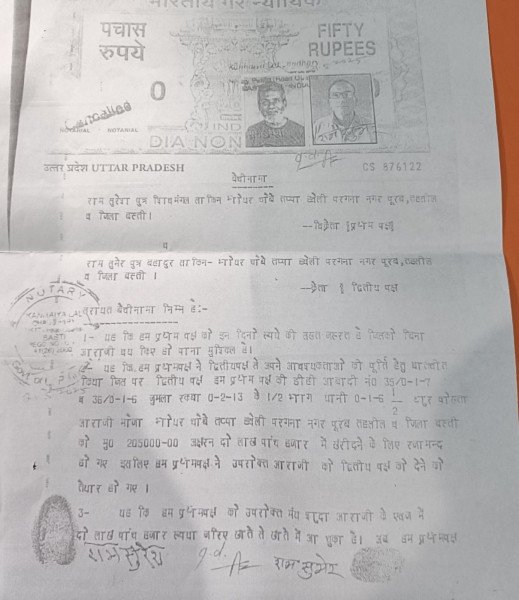 भारतीय गैर न्यायिक
पचास
रुपये
FIFTY
RUPEES
0
NOTARIAL NOTARIAL
DIA NON
उत्तर प्रदेश UTTAR PRADESH
CS 876122
बैयीनामा
राम सुरेश पुत्र शिवमंगल साकिन
तप्पा हवेली परगना नगर पूरब, तहसील
व जिला बस्ती।
--विक्रेता प्रथम पक्ष
व
राम सुमेर पुत्र बहादुर साकिन-
तप्पा हवेली परगना नगर पूरब, तहसील
व जिला बस्ती ।
--क्रेता द्वितीय पक्ष
NOTARY
KANHAIYA LAL
BASTI
बैयीनामा निम्न है:-
1- यह कि हम प्रथम पक्ष को इन दिनों रूपये की सख्त जरूरत है जिसको बिना
आराजी बय किए हो पाना मुश्किल है।
2- यह कि हम प्रथमपक्ष ने द्वितीयपक्ष से अपने आवश्यकताओं की पूर्ति हेतु बातचीत
किया जिस पर द्वितीय पक्ष हम प्रथम पक्ष की डीही आबादी नं0 36/0-1-7
व 36/0-1-6 जुमला रकबा 0-2-13 के 1/2 भाग यानी 0-1-6 1/2
आराजी मौजा तप्पा हवेली परगना नगर पूरब तहसील व जिला बस्ती
को मु0 205000-00 अक्षरन दो लाख पांच हजार में खरीदने के लिए रजामन्द
हो गए इसलिए हम प्रथमपक्ष ने उपरोक्त आराजी को द्वितीय पक्ष को देने को
तैयार हो गए ।
3- यह कि हम प्रथमपक्ष को उपरोक्त आराजी के एवज में
दो लाख पांच हजार रूपया जरिए खाते से खाते में आ चुका है। अब हम प्रथमपक्ष
राम सुरेश
राम सुमेर